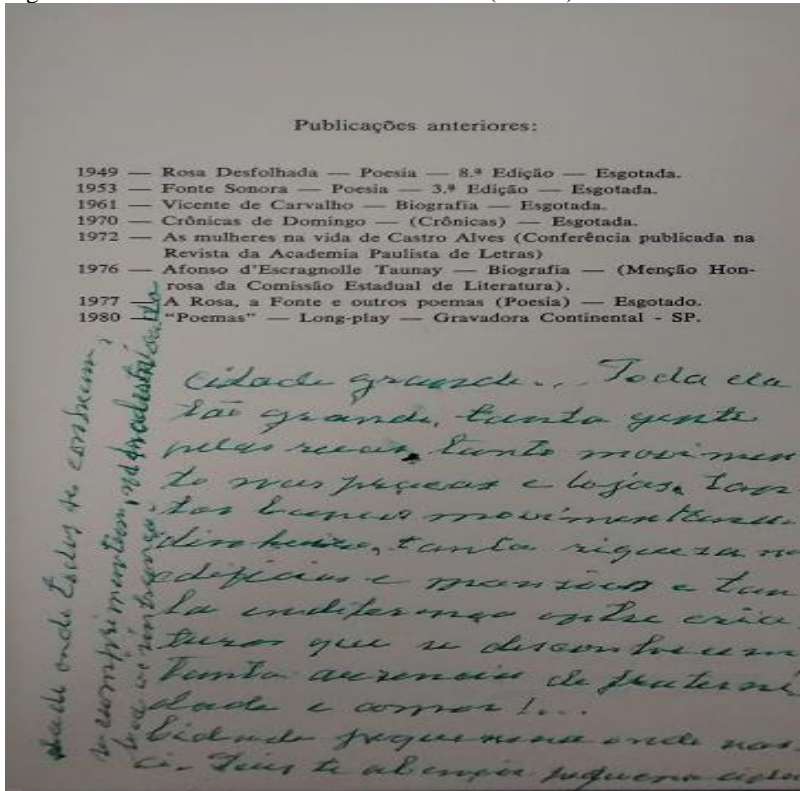 Publicações anteriores:
1949 — Rosa Desfolhada — Poesia — 8.ª Edição — Esgotada.
1953 — Fonte Sonora — Poesia — 3.ª Edição — Esgotada.
1961 — Vicente de Carvalho — Biografia — Esgotada.
1970 — Crônicas de Domingo — (Crônicas) — Esgotada.
1972 — As mulheres na vida de Castro Alves (Conferência publicada na
Revista da Academia Paulista de Letras)
1976 — Afonso d'Escragnolle Taunay — Biografia — (Menção Hon-
rosa da Comissão Estadual de Literatura).
1977 — A Rosa, a Fonte e outros poemas (Poesia) — Esgotado.
1980 — "Poemas" — Long-play — Gravadora Continental - SP.
cidade grande... Toda ela
tão grande, tanta gente
pelas ruas, tanto movimen
to nas praças e lojas, tan
tos bancos movimentando
dinheiro, tanta riqueza n
edifícios e mansões e tan
ta indiferença entre cria
turas que se desconhecem
Tanta ausencia de fraterni
dade e amor!...
Cidade pequenina onde nas
ci. Deus te abençoe pequena cida
dade onde todos se conhecem,
se comprimentam,